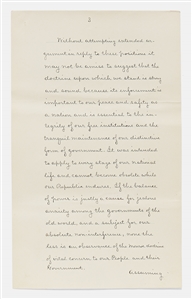 2
Without attempting extended ar-
gument in reply to these positions it
may not be amiss to suggest that the
doctrine upon which we stand is strong
and sound because its enforcement is
important to our peace and safety as
a nation and is essential to the in-
tegrity of our free institutions and the
tranquil maintenance of our distinctive
form of government. It was intended
to apply to every stage of our national
life and cannot become obsolete while
our Republic endures. If the balance
of power is justly a cause for jealous
anxiety among the governments of the
old world, and a subject for our
absolute non-interference, none the
less is an observance of the Monroe doctrine
of vital concern to our People and their
Government.
Assuming